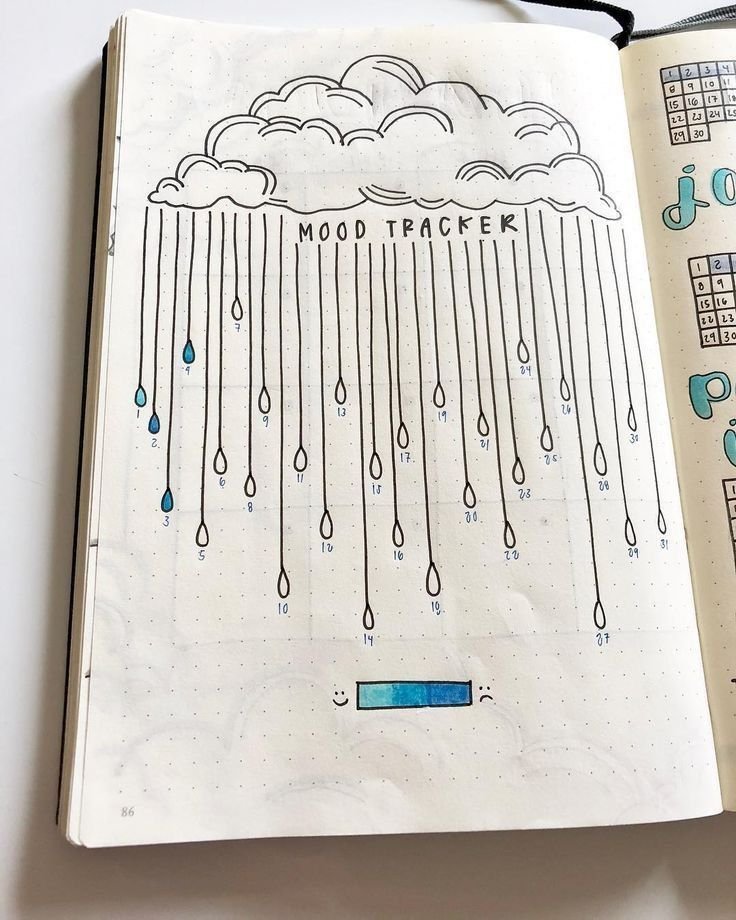 MOOD TRACKER
1
2
3
4
5
6
7
8
9
10
11
12
13
14
15
16
17
18
19
20
21
22
23
24
25
26
27
28
29
30
31
86
1 2 3 4
8 9 10 11
15 16 17 18
22 23 24 25
29 30
1 2
8 9
15 16
22 23
29 30